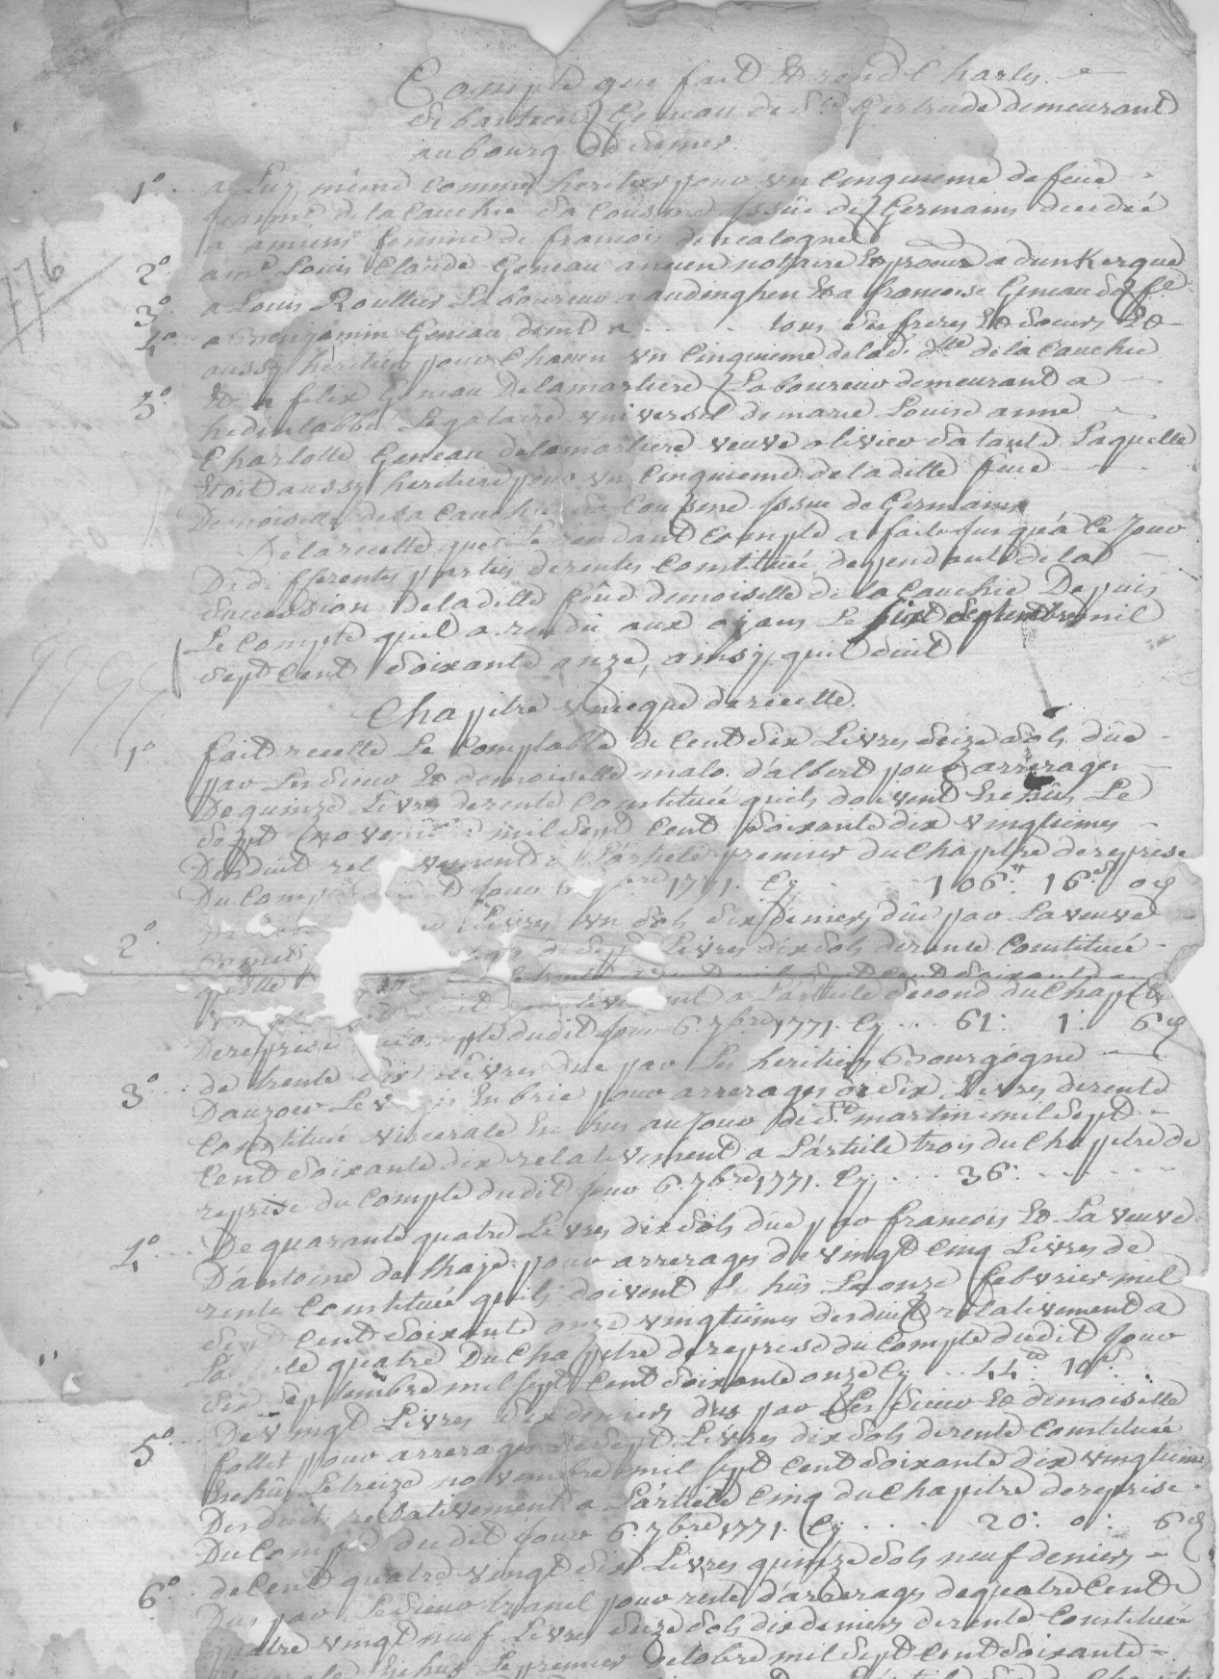 Compte que fait Et rend Charles
Sebastien Geneau de Ste Gertrude demeurant
au bourg de Samer
1° a Luy même comme heritier pour un Cinquieme de feüe
Jeanne de la Cauchie Sa Cousine issüe de Germains decedée
a amiens femme de francois
2° a me Louis Claude Geneau ancien notaire Et procur a dunKerque
3° a Louis Roullier Laboureur a audinghen Et a francoise Geneau Sa fe
4° a Benjamin Geneau demt a . . . tous Ses freres Et Soeurs Et
aussy héritiers pour Chacun un Cinquieme de lad. dlle de la Cauchie
5° Et a felix Geneau Delamartiere Laboureur demeurant a
hedinlabbé Legataire universel de marie Louise anne
Charlotte Geneau delamartiere veuve olivier Sa tante Laquelle
Etoit aussy heritiere pour un Cinquieme de la ditte feüe
Demoiselle de la Cauchie Sa Cousine issue de Germains
De la recette que Le rendant Compte a faite jusqu'à Ce Jour
De differentes parties de rentes Constituées dependantes de la
Succession de la ditte feüe demoiselle de la Cauchie Depuis
Le Compte quil a rendu aux oyans Le Six Septembre mil
Sept Cent Soixante onze, ainsy quil Suit
776
Chapitre unicque de recette
1° fait recette Le Comptable de Cent Six Livres Seize Sols düe
par Les Sieur Et demoiselle malo d'albert pour arrerages
De quinze Livres de rente Constituée quils doivent Echus Le
Sept novembre mil Sept Cent Soixante dix vingtiemes
Deduit relativement a L'article premier du Chapitre de reprise
Du Compte dudit Jour 7bre 1771. Cy 106# 16s 0d
2° Livres un Sols Six deniers düe par La veuve
de Sept Livres dix Sols de rente Constituée
quelle mil Sept Cent Soixante
relativement a L'article Second du Chapitre
De reprise du Compte dudit Jour 6. 7bre 1771. Cy ... 61: 1: 6d
3° de trente Six Livres düe par Les heritiers Bourgogne
En brie pour arrerages de Six Livres de rente
Constituée viscerale Echus au Jour de St martin mil Sept
Cent Soixante dix relativement a L'article trois du Chapitre de
reprise du Compte dudit Jour 6. 7bre 1771. Cy ... 36:
4° De quarante quatre Livres dix Sols düe par francois Et La veuve
D'antoine de lhaye pour arrerages de vingt Cinq Livres de
rente Constituée quils doivent Echûs Le onze febvrier mil
Sept Cent Soixante onze vingtiemes deduit relativement a
La quatre Du Chapitre de reprise du Compte dudit Jour
Six Septembre mil Sept Cent Soixante onze Cy .. 44# 10s
5° De vingt Livres Six deniers dus par Les Sieur Et demoiselle
follet pour arrerages de Sept Livres dix Sols de rente Constituée
Echûs Le treize novembre mil Sept Cent Soixante dix vingtiemes
Deduits relativement a L'article Cinq du Chapitre de reprise
Du Compte du dit Jour 6. 7bre 1771. Cy .... 20: 0: 6d
6° de Cent quatre vingt Six Livres quinze Sols neuf deniers
Dus par Le Sieur pour reste d'arrerages de quatre Cent
quatre vingt neuf Livres Seize Sols dix deniers de rente Constituée
Echus Le premier octobre mil Sept Cent Soixante